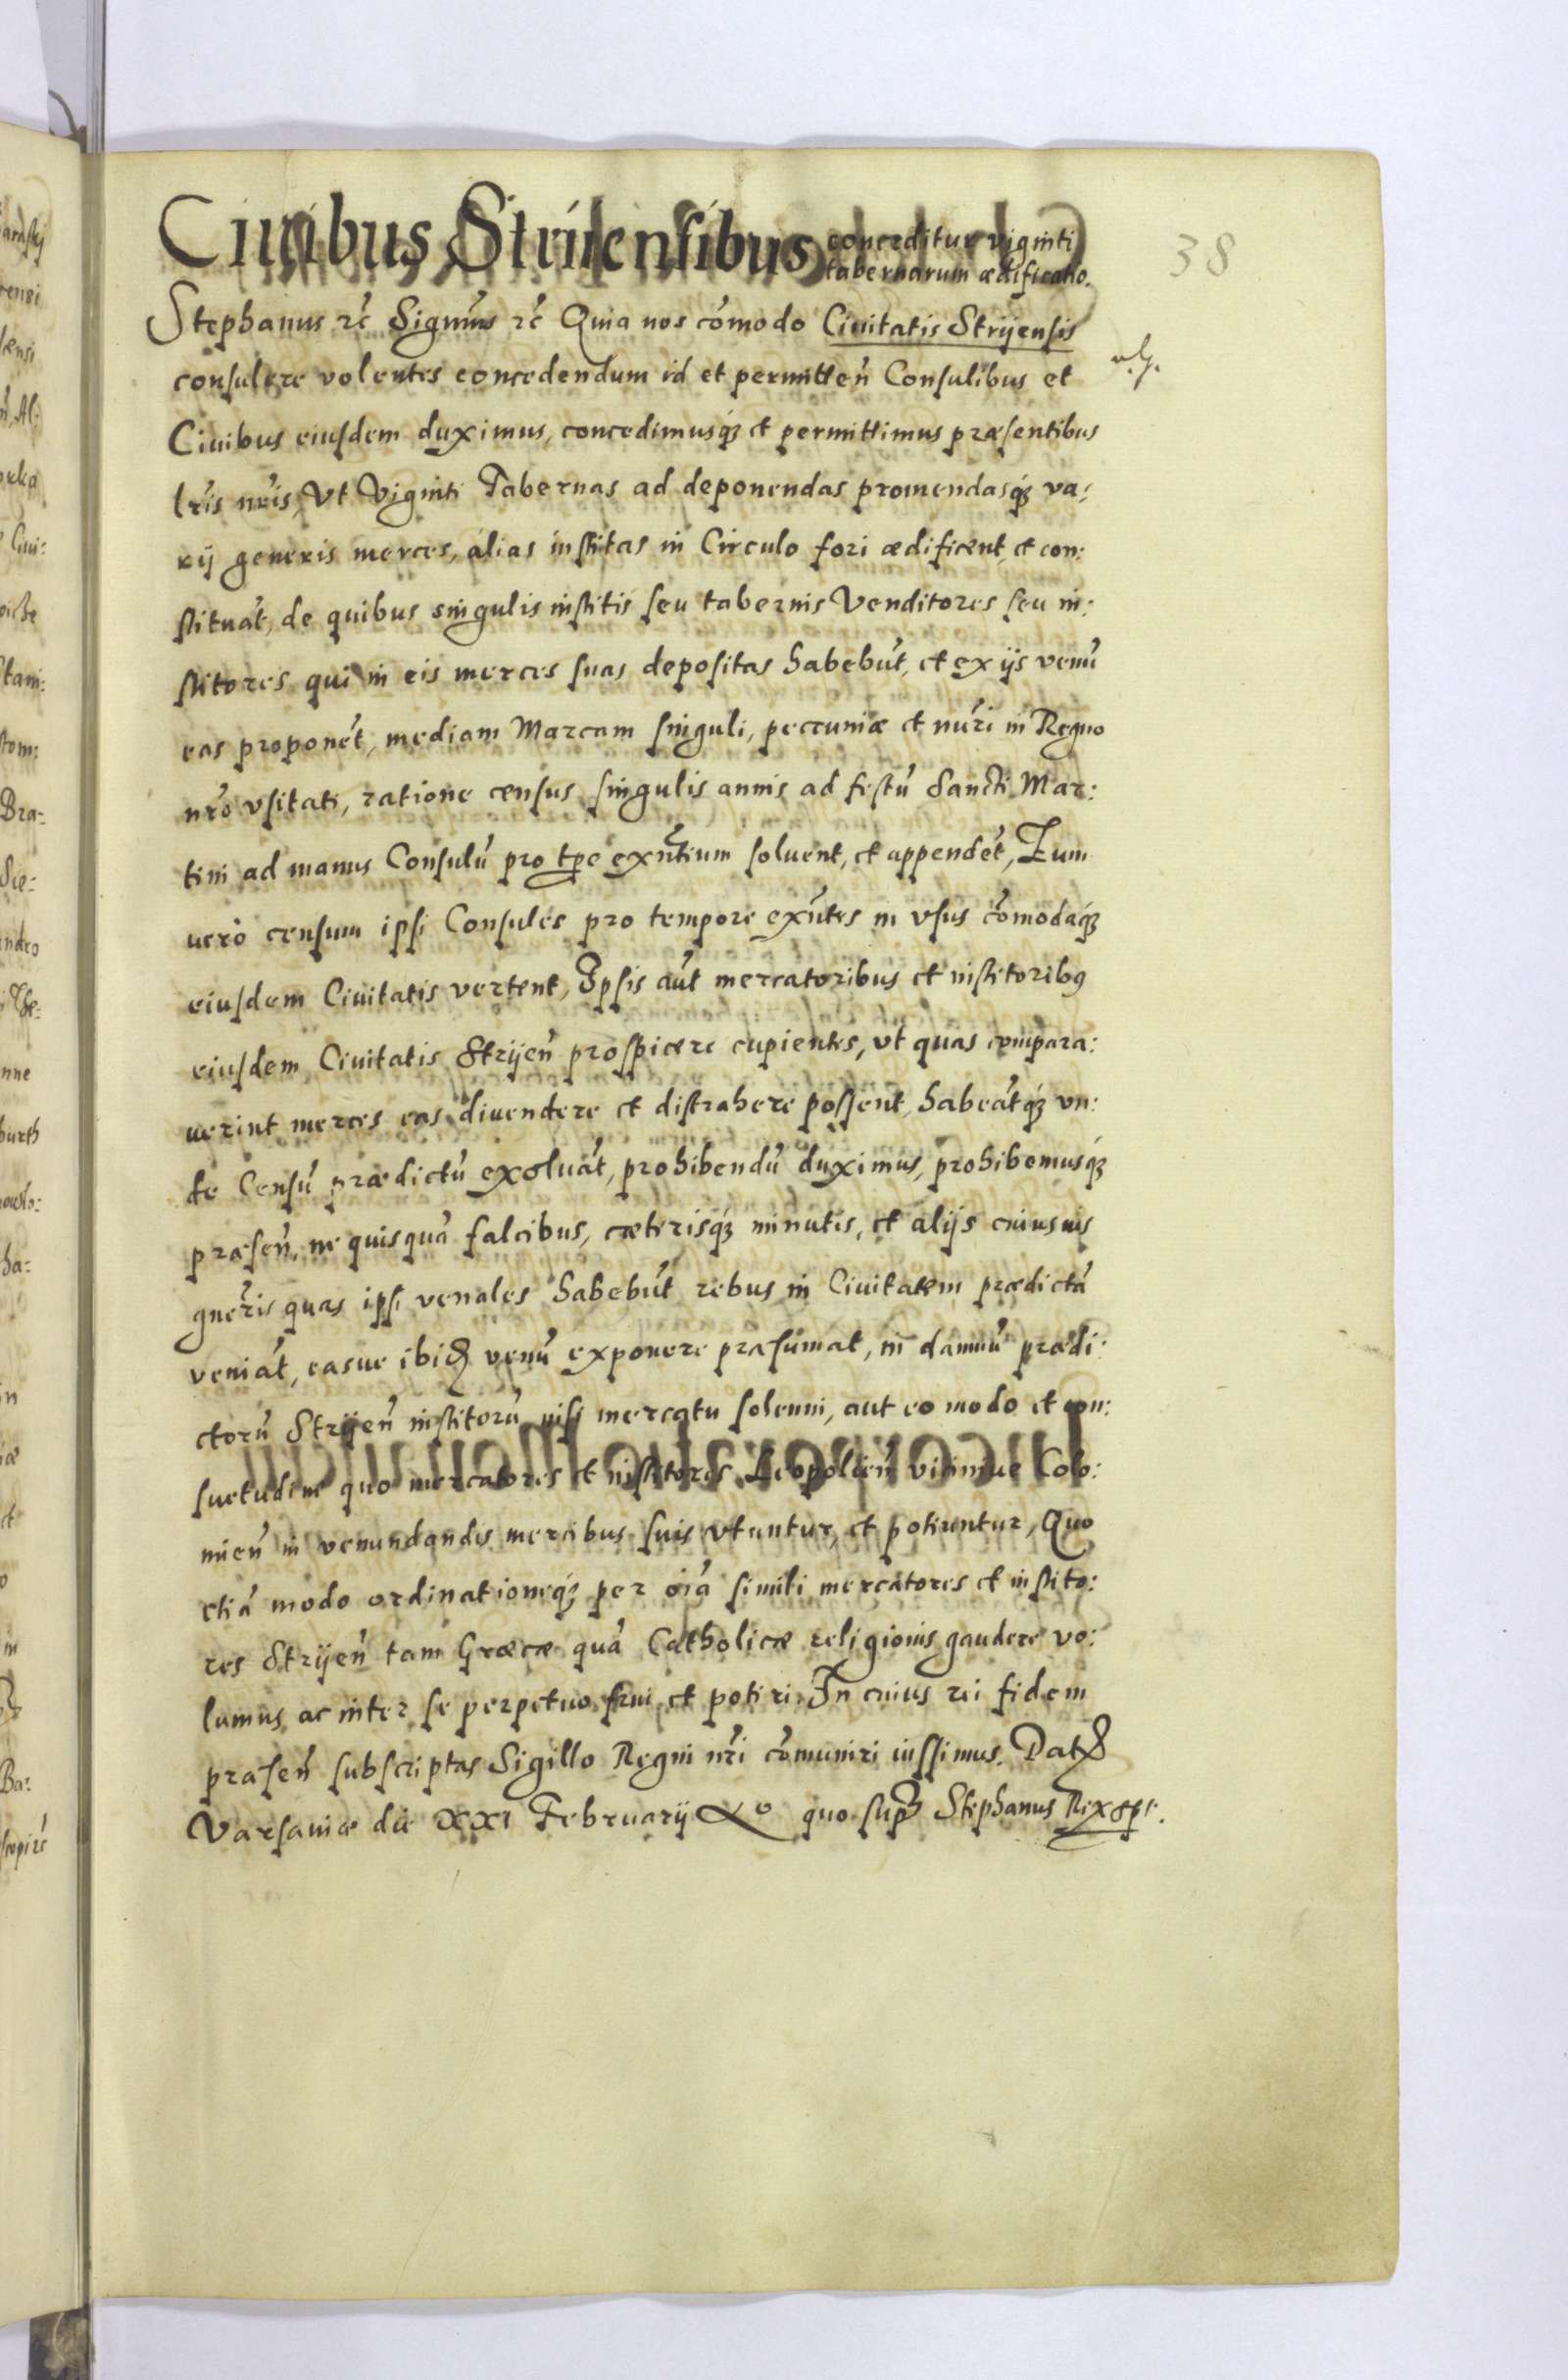 Ciuibus Striiensibus conceditur viginti
tabernarum ædificatio.
38
Stephanus rc̃ Signm̃s rc̃ Quia nos cõmodo Ciuitatis Strÿensis
consulere volentes concedendum id et permitteñ Consulibus et
Ciuibus eiusdem duximus, concedimusq́ꝫ et permittimus præsentibus
lr̃is nr̃is, Vt Viginti Tabernas ad deponendas promendasq́ꝫ va:
rij generis merces, alias institas in Circulo fori ædificent, et con:
stituãt, de quibus singulis institis seu tabernis Venditores seu in:
stitores qui in eis merces suas depositas habebũt, et ex ijs venũ
eas proponẽt, mediam Marcam singuli, pecuniæ et nũri in Regno
nr̃o vsitati, ratione census singulis annis ad festũ Sancti Mar:
tini ad manus Consulũ pro tp̃e exñtium soluent, et appendẽt, Eum
uerò censum ipsi Consules pro tempore exñtes in vsus cõmodaq́ꝫ
eiusdem Ciuitatis vertent, Ipsis aũt mercatoribus et institoribꝰ
eiusdem Ciuitatis Strijeñ prospicere cupientes, vt quas compara:
uerint merces eas diuendere et distrahere possent, habeãtq́ꝫ vn:
de Censũ prædictũ exoluãt, prohibendũ duximus, prohibemusq́ꝫ
præseñ, ne quisquã falcibus, cæterisq́ꝫ minutis, et alijs cuiusuis
gner̃is quas ipsi venales habebũt rebus in Ciuitatem prædictã
veniãt, easue ibiꝺ venũ exponere præsumat, in damnũ prædi:
ctorũ Strijeñ institorũ nisi mercatu solenni, aut eo modo et con:
suetudine quo mercatores et institores Leopolieñ vicimue Colo:
mieñ in venundandis mercibus suis vtuntur, et potiuntur, Quo
etiã modo ordinationeq́ꝫ per oĩa simili mercatores et instito:
res Strijeñ tam Græcæ quã Catholicæ religionis gaudere vo:
lumus ac inter se perpetuo frui et potiri. In cuius rei fidem
præseñ subscriptas Sigillo Regni nr̃i cõmuniri iussimus. Datꝭ
Varsauiæ die XXI Februarij Aº quo sup̃ Stephanus Rex sst.